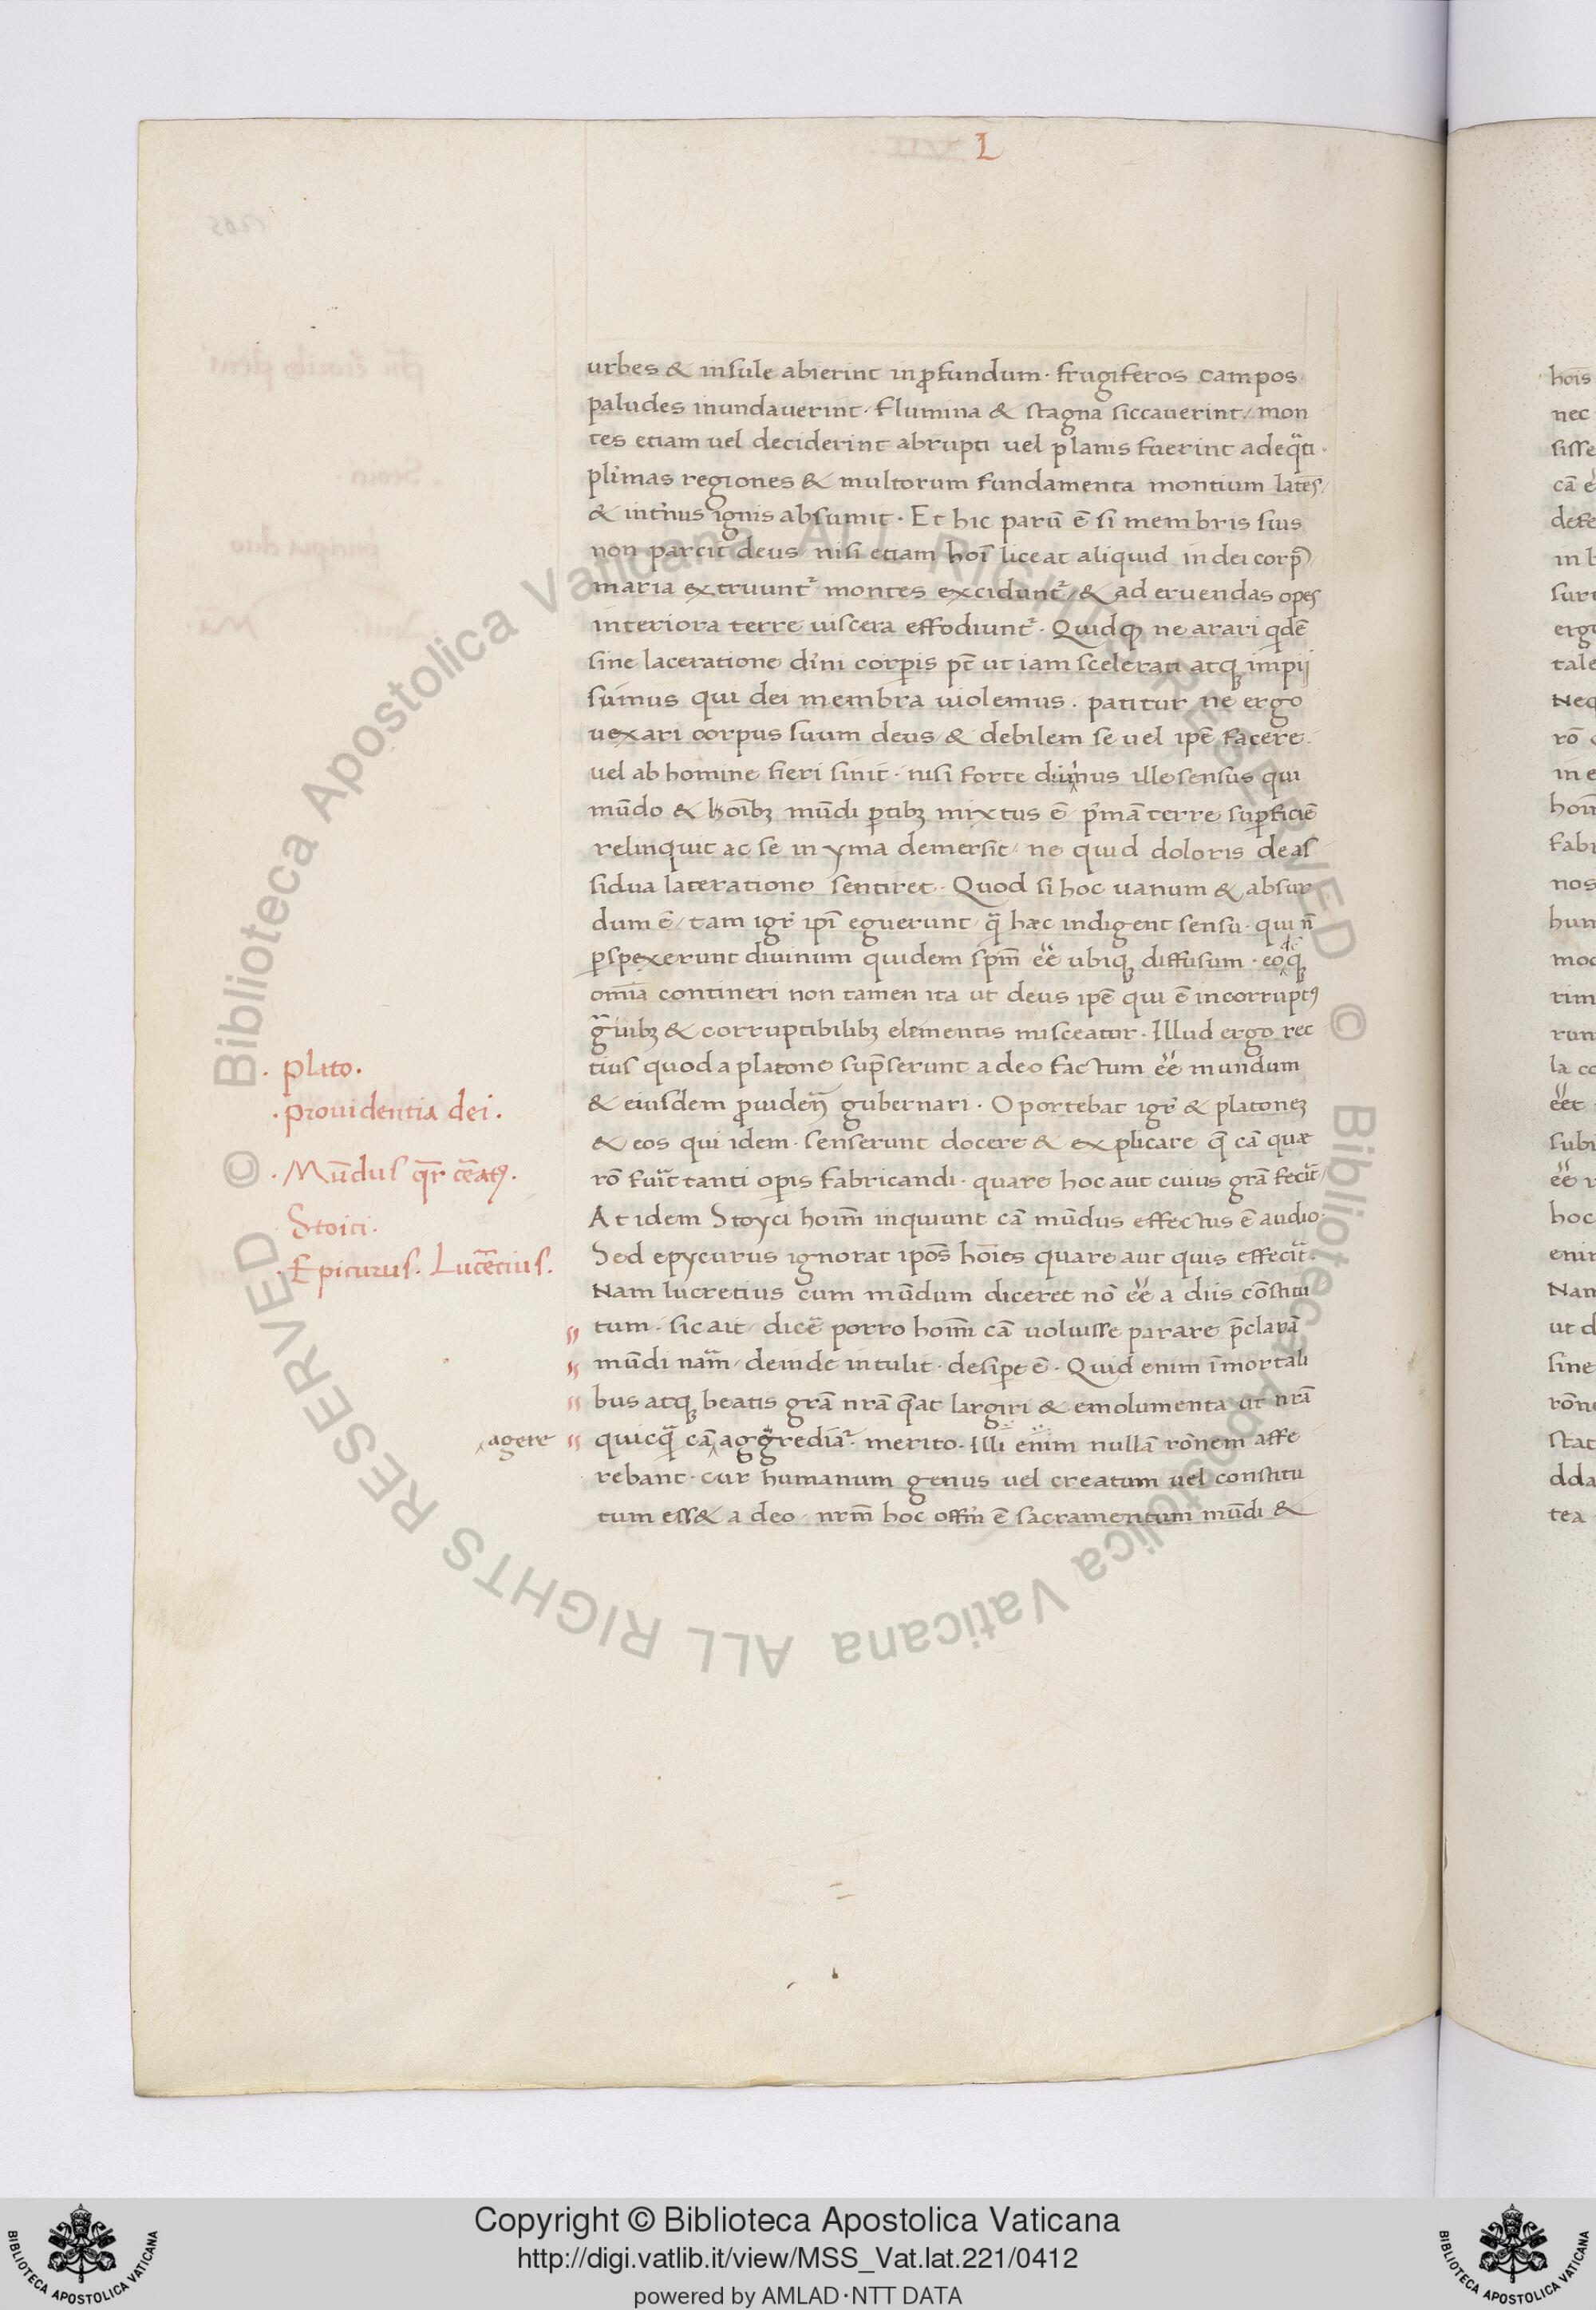 L
urbes & insule abierint in ꝓfundum · frugiferos campos
paludes inundauerint · flumina & stagna siccauerint / mon
tes etiam uel deciderint abrupti uel planis fuerint adeq̃ti ·
pl'imas regiones & multorum fundamenta montium latẽs /
& int'nus ignis absumit · Et hic parũ ẽ si membris suis
non parcit deus / nisi etiam hoĩ liceat aliquid in dei corꝑ /
maria extruunt᷑ / montes excidunt᷑ / & ad eruendas opes
interiora terre uiscera effodiunt᷑ · Quidꝙ ne arari q̇dẽ
sine laceratione diĩni corꝑis pt̃ ut iam scelerati atqꝫ impij
simus qui dei membra uiolemus · patitur ne ergo
uexari corpus suum deus / & debilem se uel ip̃e facere
uel ab homine fieri sinit · nisi forte diuinus ille sensus qui
mũdo & hoĩbꝫ mũdi ꝑtibꝫ mixtus ẽ / p'mã terre suꝑficiẽ
relinquit ac se in yma demersit / ne quid doloris de as
sidua laceratione sentiret · Quod si hoc uanum & absur
dum ẽ / tam igr̃ ip̃i eguerunt / q̃ hæc indigent sensu · qui ñ
ꝑspexerunt diuinum quidem sp̃m eẽ ubiqꝫ diffusum · eoqꝫ
om̃ia contineri non tamen ita ut deus ip̃e qui ẽ incorruptꝰ
g̃uibꝫ & corruptibilibꝫ elementis misceatur · Illud ergo rec
tius quod a platone sup̃serunt a deo factum eẽ mundum
& eiusdem ꝓuideñ gubernari · Oportebat igr̃ & platonem
& eos qui idem · senserunt docere & explicare q̃ cã quæ
rõ fuit̃ tanti oꝑis fabricandi · quare hoc aut cuius grã fecit̃ /
At idem Stoyci hoim̃ inquiunt cã mũdus effectus ẽ audio ·
Sed epycurus ignorat ip̃os hoĩes quare aut quis effecit̃ ·
Nam lucretius cum mũdum diceret nõ eẽ a diis cõstitu
tum · sic ait / dicẽ porro hoim̃ cã uoluisse parare p̃clarã
mũdi nam̃ / deinde intulit · desiꝑe ẽ · Quid enim ĩmortali
bus atqꝫ beatis grã nrã q̃at largiri & emolumenta ut nrã
quicq̃ cã aggrediãt᷑ · merito · Illi enim nullã rõnem affe
rebant · cur humanum genus uel creatum uel constitu
tum ess& a deo / nrm̃ hoc offm̃ ẽ sacramentum mũdi &
· plato ·
· prouidentia dei ·
· Mũdus q̃r cr̃eatꝰ ·
Stoici ·
· Epicurus · Lucr̃etius ·
agere
Copyright © Biblioteca Apostolica Vaticana
http://digi.vatlib.it/view/MSS_Vat.lat.221/0412
powered by AMLAD·NTT DATA